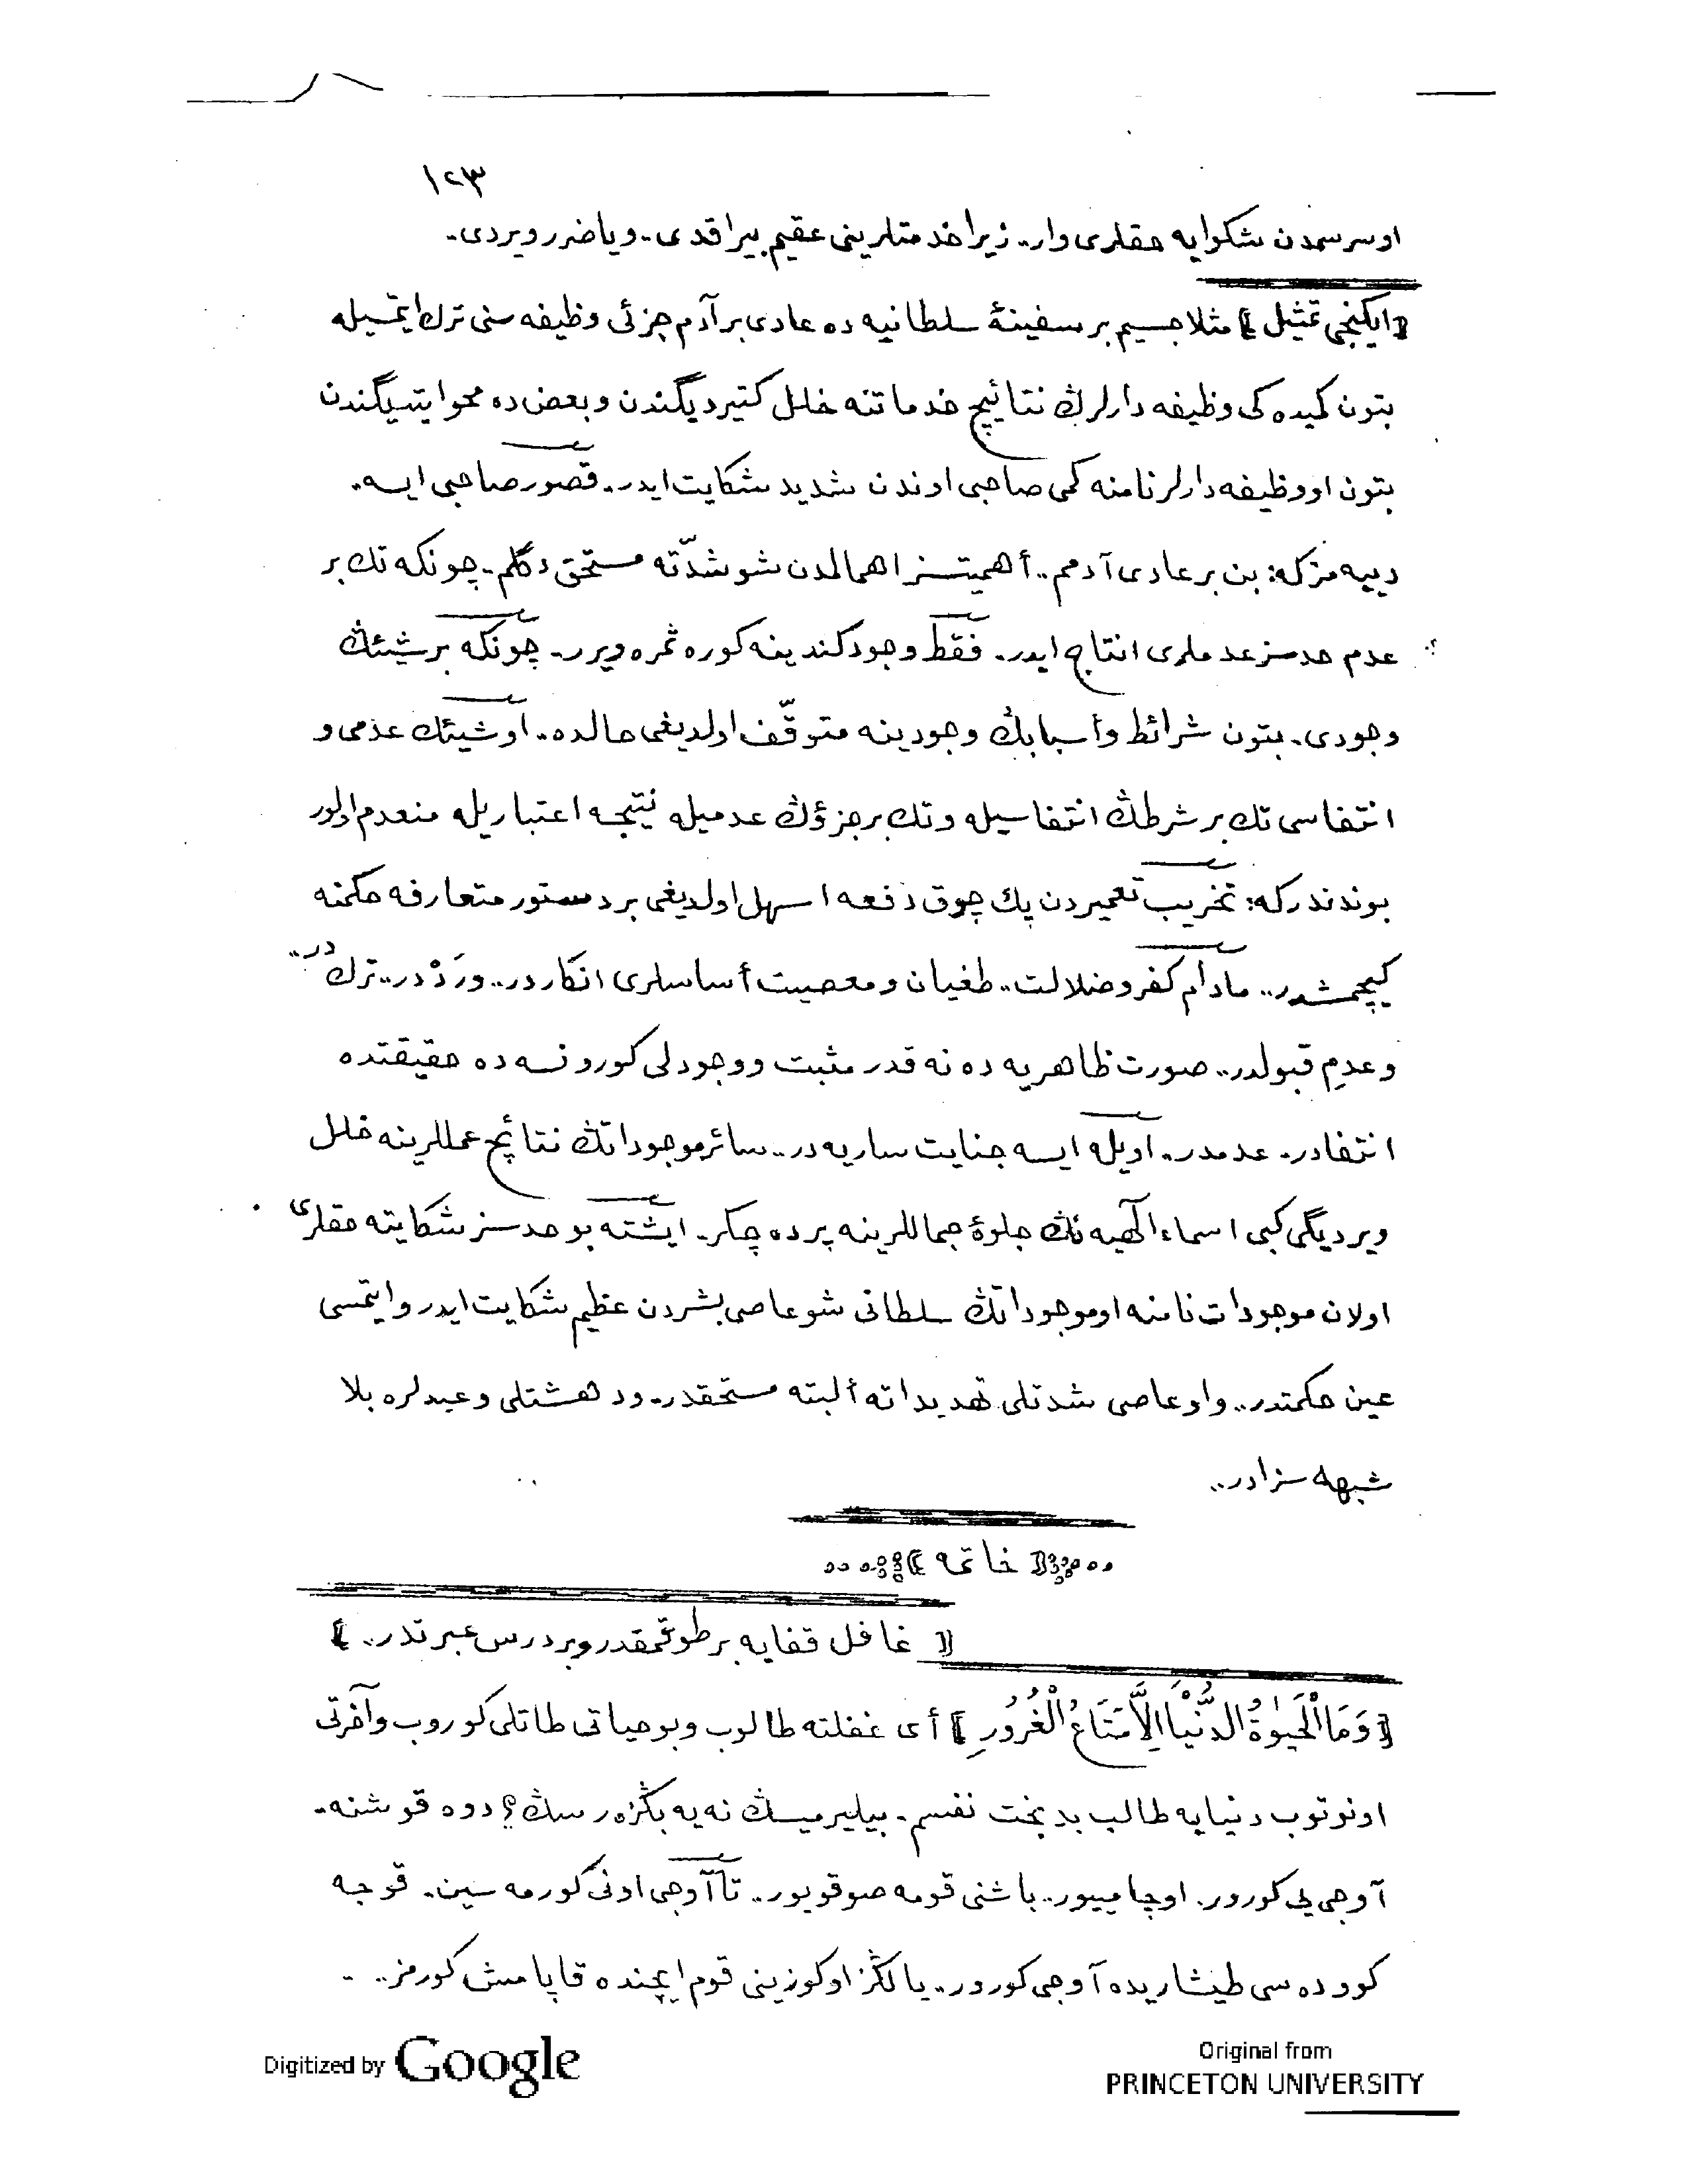 ١٢٣
او سرسمدن شكوايه حقلرى وار.. زيرا خدمتلرينى عقيم بيراقدى.. ويا ضرر ويردى..
﴿ايكنجى تمثيل﴾ مثلا جسيم بر سفينۀ سلطانيه ده عادى بر آدم جزئى وظيفه سنى ترك ايتمسيله
بتون كميده كى وظيفه دارلرڭ نتائج خدماتنه خلل كتيرديگندن وبعض ده محو ايتديگندن
بتون او وظيفه دارلر نامنه كمى صاحبى اوندن شديد شكايت ايدر.. قصور صاحبى ايسه..
دييه مزكه: بن بر عادى آدمم.. أهميتسز اهمالمدن شو شدّته مستحق دگلم.. چونكه تك بر
عدم حدسز عدملرى انتاج ايدر.. فقط وجود كندينه كوره ثمره ويرر.. چونكه بر شيئڭ
وجودى.. بتون شرائط وأسبابڭ وجودينه متوقّف اولديغى حالده.. او شيئڭ عدمى و
انتفاسى تك بر شرطڭ انتفاسيله وتك بر جزؤڭ عدميله نتيجه اعتباريله منعدم اولور
بوندندركه: تخريب تعميردن پك چوق دفعه اسهل اولديغى بر دستور متعارفه حكمنه
كيچمشدر.. مادام كفر وضلالت.. طغيان ومعصيت أساسلرى انكاردر.. وردْدر.. تركدر..
وعدمِ قبولدر.. صورت ظاهريه ده نه قدر مثبت ووجودلى كورونسه ده حقيقتده
انتفادر. عدمدر.. اويله ايسه جنايت ساريه در.. سائر موجوداتڭ نتائج عمللرينه خلل
ويرديگى كبى اسماء الٓهيه نڭ جلوۀ جماللرينه پرده چكر.. ايشته بو حدسز شكايته حقلرى
اولان موجودات نامنه او موجوداتڭ سلطانى شو عاصى بشردن عظيم شكايت ايدر وايتمسى
عين حكمتدر.. واو عاصى شدتلى تهديداته ألبته مستحقدر.. ودهشتلى وعيدلره بلا
شبهه سزادر..
﴿خاتمه﴾
﴿غافل قفايه بر طوقمقدر وبر درس عبرتدر..﴾
﴿وَمَا الْحَيٰوةُ الدُّنْيَا اِلَّا مَتَاعُ الْغُرُورِ﴾ أى غفلته طالوب وبو حياتى طاتلى كوروب وآخرتى
اونوتوب دنيايه طالب بدبخت نفسم.. بيليرميسڭ نه يه بڭزه رسڭ؟ دوه قوشنه..
آوجى يى كورور. اوچاميیور.. باشنى قومه صوقويور.. تا آوجى اونى كورمه سين.. قوجه
كووده سى طيشاريده آوجى كورور.. يالڭز او كوزينى قوم ايچنده قاپامش كورمز..
Digitized by Google
Original from
PRINCETON UNIVERSITY